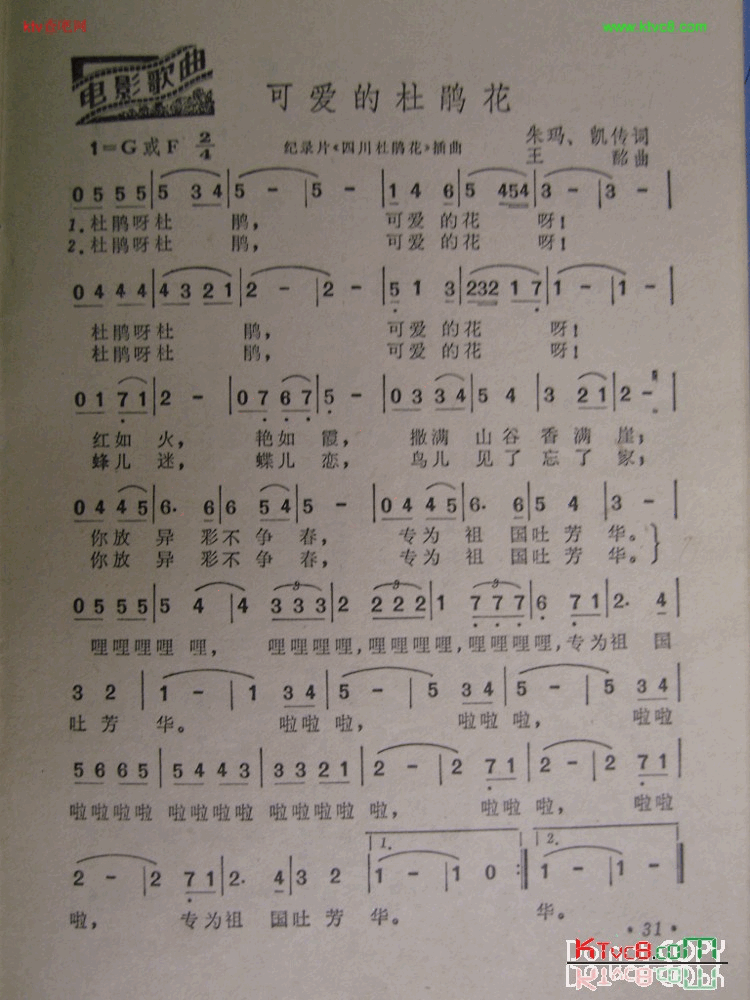 ktvc8.com
www.ktvc8.com
电影歌曲
可爱的杜鹃花
1=G或F 2/4
纪录片《四川杜鹃花》插曲
朱玛、凯传词
王 酩曲
0 5 5 5 | 5 3 4 | 5 - | 5 - | 1 4 6 | 5 454 | 3 - | 3 - |
1.杜鹃呀杜 鹃, 可爱的花 呀!
2.杜鹃呀杜 鹃, 可爱的花 呀!
0 4 4 4 | 4 3 2 1 | 2 - | 2 - | 5 1 3 | 232 1 7 | 1 - | 1 - |
杜鹃呀杜 鹃, 可爱的花 呀!
杜鹃呀杜 鹃, 可爱的花 呀!
0 1 7 1 | 2 - | 0 7 6 7 | 5 - | 0 3 3 4 | 5 4 | 3 2 1 | 2 -
红如 火, 艳如霞, 撒满 山谷香满崖;
蜂儿 迷, 蝶儿恋, 鸟儿 见了忘了家,
0 4 4 5 | 6. 6 | 6 5 4 | 5 - | 0 4 4 5 | 6. 6 | 5 4 | 3 - |
你放 异 彩不争春, 专为 祖 国吐芳华。
你放 异 彩不争春, 专为 祖 国吐芳华。
0 5 5 5 | 5 4 | 4 3 3 3 | 2 2 2 2 | 1 7 7 7 | 6 7 1 | 2. 4 |
哩哩哩哩 哩, 哩哩哩哩,哩哩哩哩,哩哩哩哩,专为祖 国
3 2 | 1 - | 1 3 4 | 5 - | 5 3 4 | 5 - | 5 3 4 |
吐芳 华。 啦啦 啦, 啦啦 啦, 啦啦
5 6 6 5 | 5 4 4 3 | 3 3 2 1 | 2 - | 2 7 1 | 2 - | 2 7 1 |
啦啦啦啦 啦啦啦啦 啦啦啦啦 啦, 啦啦 啦, 啦啦
1. 2.
2 - | 2 7 1 | 2. 4 | 3 2 | 1 - | 1 0 :| 1 - | 1 - ‖
啦, 专为祖 国吐芳 华。 华。
·31·
KTvc8.com
DONG COPY